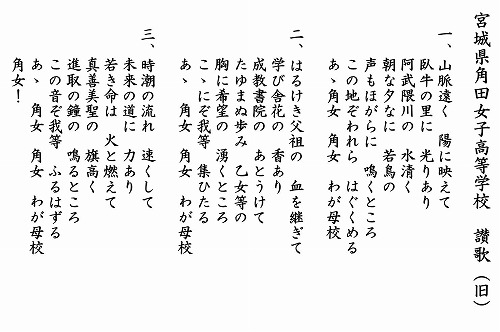 宮城県角田女子高等学校　讃歌（旧）
一、山脈遠く　陽に映えて
臥牛の里に　光りあり
阿武隈川の　水清く
朝な夕なに　若鳥の
声もほがらに　鳴くところ
この地ぞわれら　はぐくめる
あゝ　角女　角女　わが母校
二、はるけき父祖の　血を継ぎて
学び舎花の　香あり
成教書院の　あとうけて
たゆまぬ歩み　乙女等の
胸に希望の　湧くところ
こゝにぞ我等　集ひたる
あゝ　角女　角女　わが母校
三、時潮の流れ　速くして
未来の道に　力あり
若き命は　火と燃えて
真善美聖の　旗高く
進取の鐘の　鳴るところ
この音ぞ我等　ふるはずる
あゝ　角女　角女　わが母校
角女！